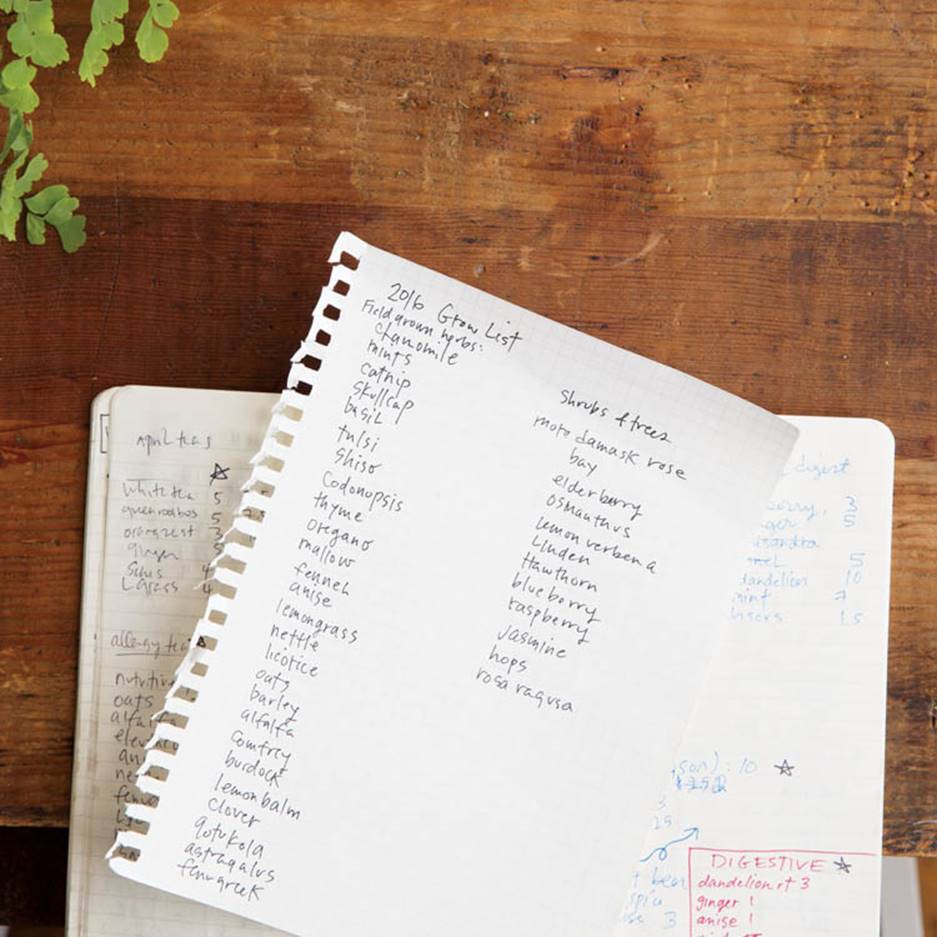 2016 Grow List
Field grown herbs:
Chamomile
mints
catnip
skullcap
basil
tulsi
Shiso
Codonopsis
thyme
oregano
mallow
fennel
anise
lemongrass
nettle
licorice
oats
barley
alfalfa
comfrey
burdock
lemonbalm
Clover
gotukola
astragalus
fenugreek
Shrubs & trees
more damask rose
bay
elderberry
osmanthus
lemon verbena
Linden
Hawthorn
blueberry
raspberry
Jasmine
hops
rosa ragusa
April teas
white tea 5
5
orangzest 3
ginger
allergy tea
oats
alfalfa
digest
3
5
5
dandelion 10
mint 7
1.5
10
3
25
3
DIGESTIVE
dandelion rt 3
ginger 1
anise 1